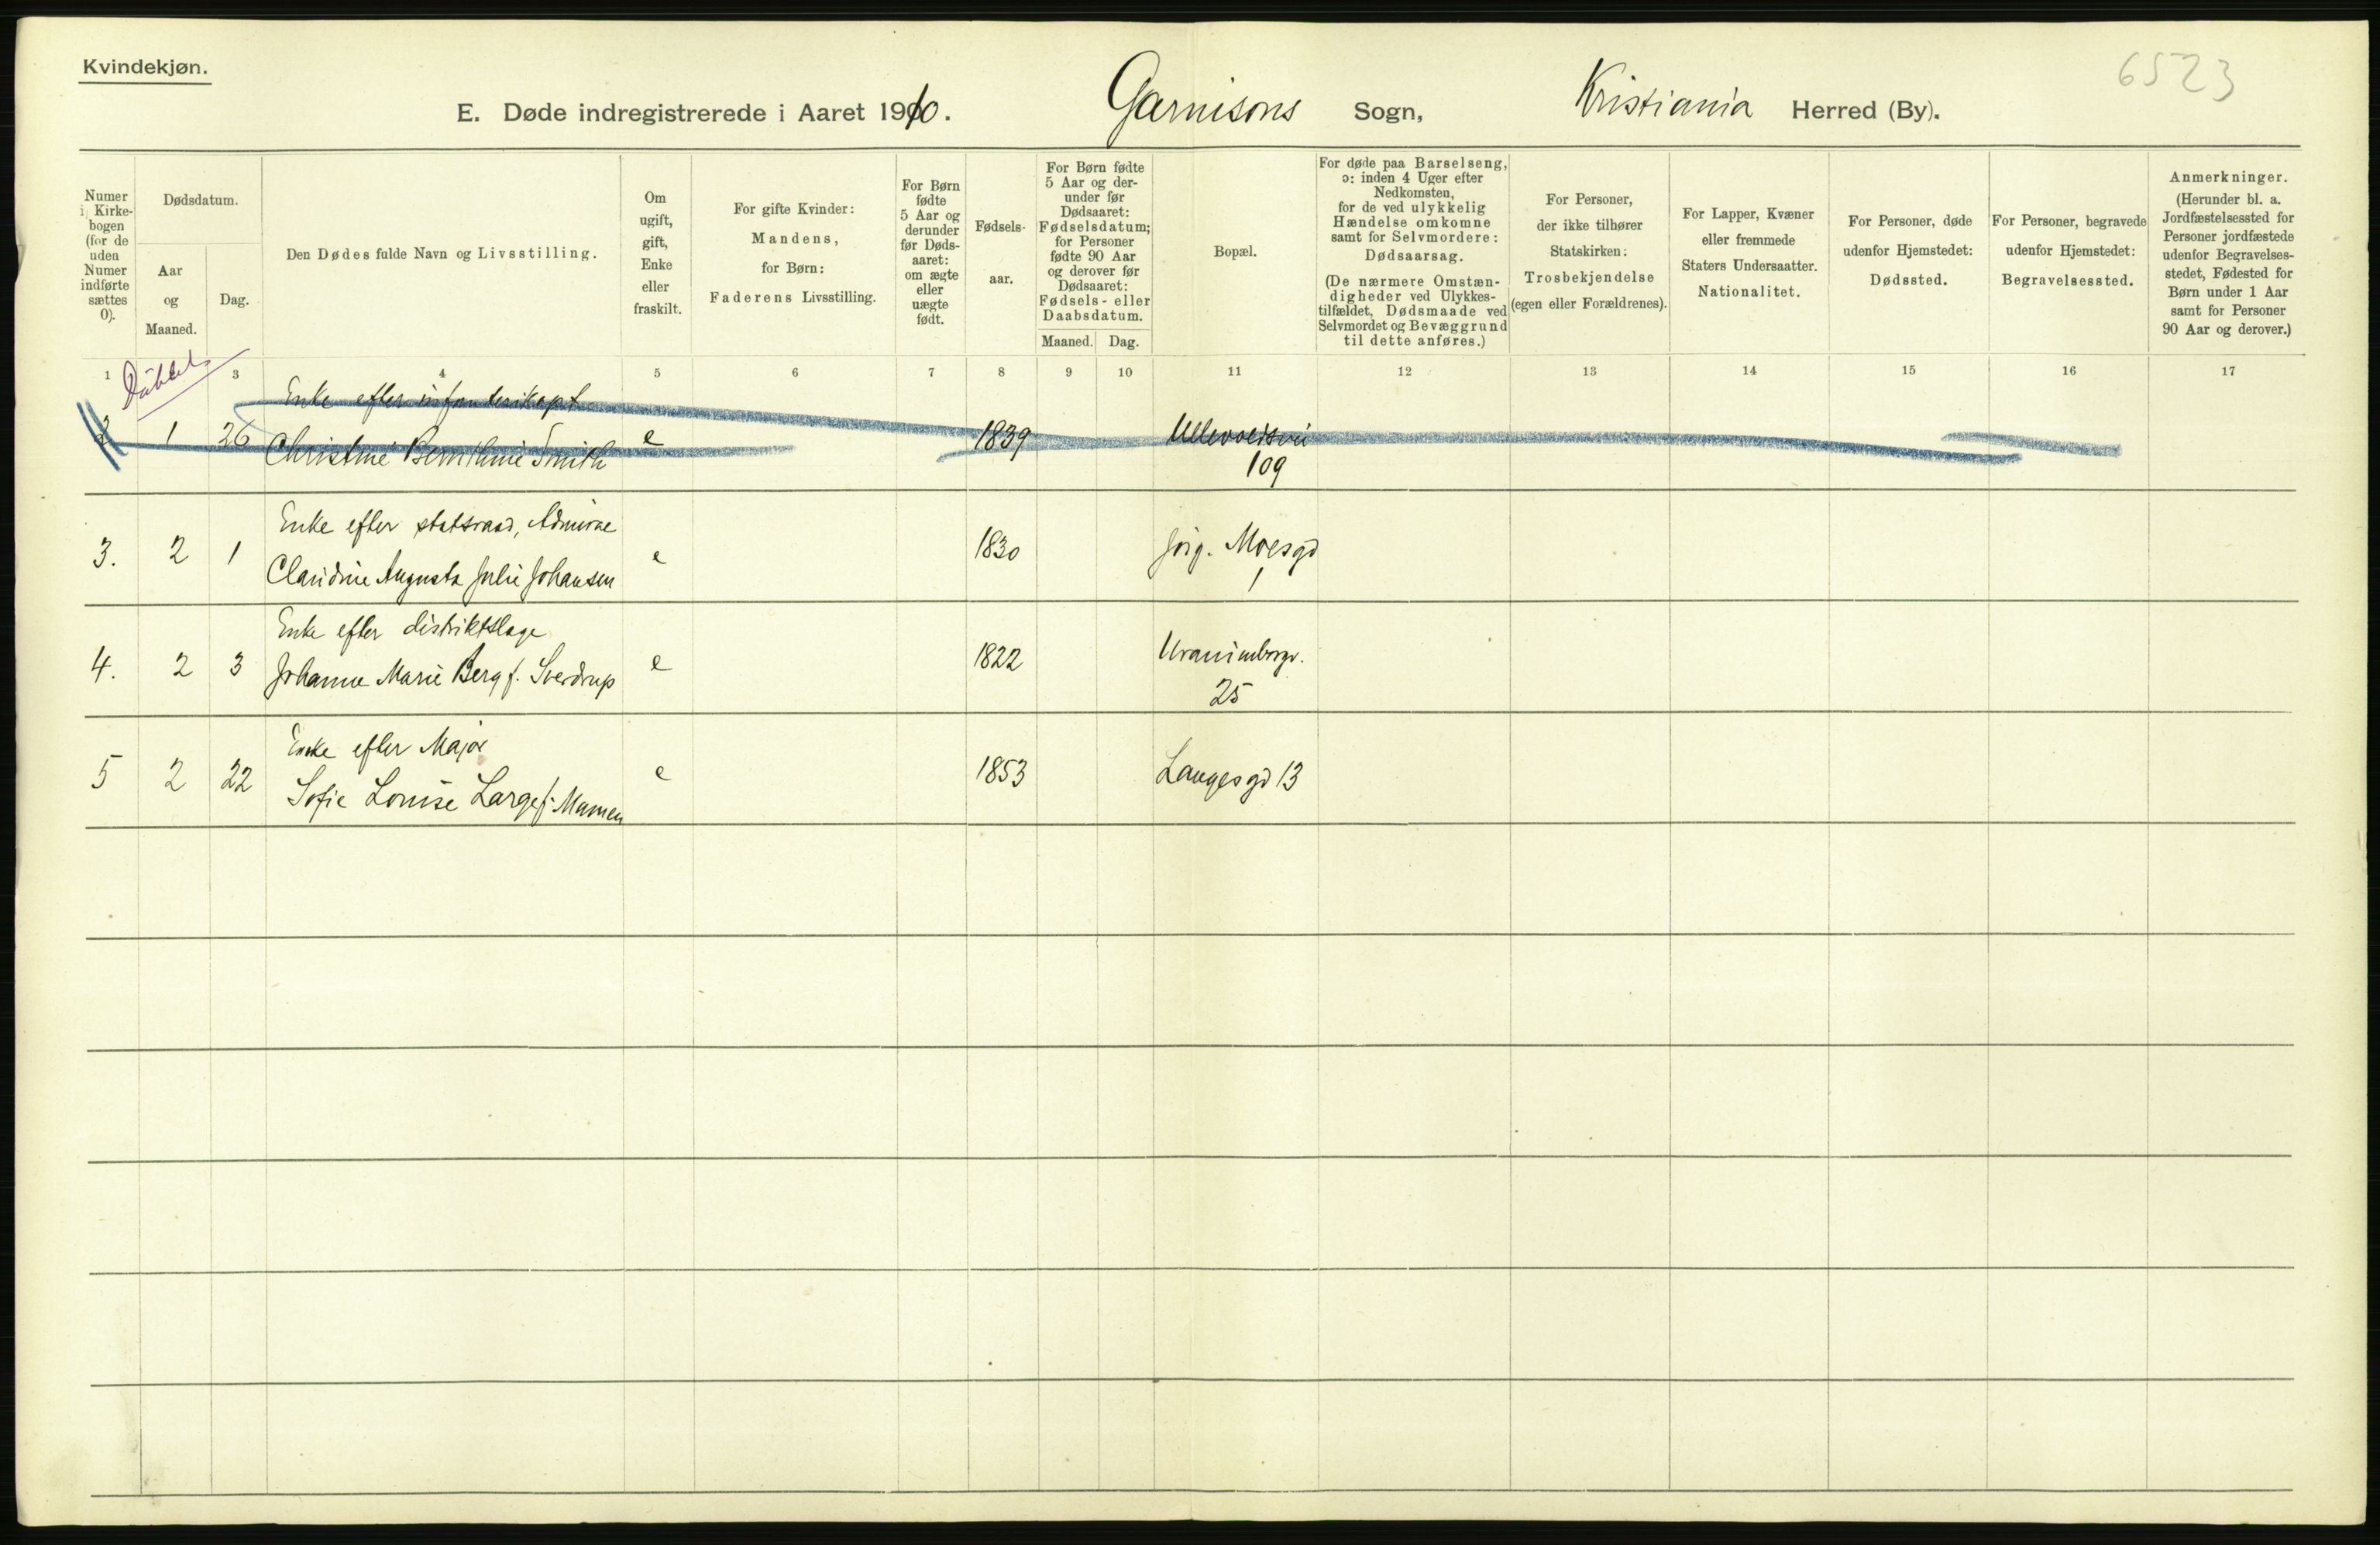 Kvindekjøn.
6523
E. Døde indregistrerede i Aaret 1910. Garnisons Sogn, Kristiania Herred (By).
Numer i Kirkebogen (for de uden Numer indførte sættes 0).
Dødsdatum.
Aar og Maaned.
Dag.
Den Dødes fulde Navn og Livsstilling.
Om ugift, gift, Enke eller fraskilt.
For gifte Kvinder: Mandens, for Børn: Faderens Livsstilling.
For Børn fødte 5 Aar og derunder før Dødsaaret: om ægte eller uægte født.
Fødselsaar.
For Børn fødte 5 Aar og derunder før Dødsaaret: Fødselsdatum; for Personer fødte 90 Aar og derover før Dødsaaret: Fødsels- eller Daabsdatum.
Maaned. Dag.
Bopæl.
For døde paa Barselseng, ɔ: inden 4 Uger efter Nedkomsten, for de ved ulykkelig Hændelse omkomne samt for Selvmordere: Dødsaarsag.
(De nærmere Omstændigheder ved Ulykkestilfældet, Dødsmaade ved Selvmordet og Bevæggrund til dette anføres.)
For Personer, der ikke tilhører Statskirken: Trosbekjendelse (egen eller Forældrenes).
For Lapper, Kvæner eller fremmede Staters Undersaatter. Nationalitet.
For Personer, døde udenfor Hjemstedet: Dødssted.
For Personer, begravede udenfor Hjemstedet: Begravelsessted.
Anmerkninger. (Herunder bl. a. Jordfæstelsessted for Personer jordfæstede udenfor Begravelsesstedet, Fødested for Børn under 1 Aar samt for Personer 90 Aar og derover.)
1 3 4 5 6 7 8 9 10 11 12 13 14 15 16 17
Enke efter infanterikapt
2 1 26 Christine Smith e 1839
109
Enke efter statsraad,
3. 2 1 Claudine Augusta Julie Johansen e 1830 Jørg. Moesgd
1
Enke efter distriktslæge
4. 2 3 Johanne Marie Berg f. Sverdrup e 1822 Uranienborgv.
25
Enke efter Major
5 2 22 Sofie Louise Lange f. Mamen e 1853 Langesgd 13